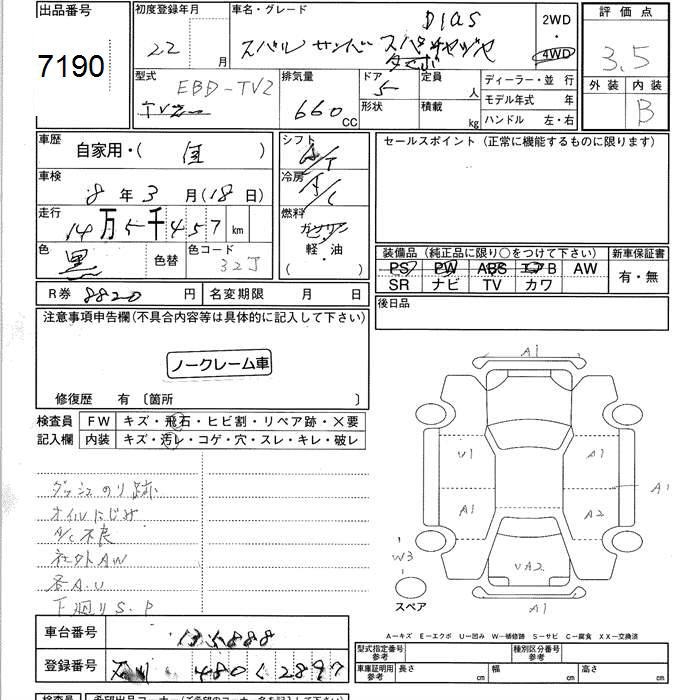 出品番号
7190
初度登録年月
22 年 月
車名・グレード
DIAS
スバル サンバー スーパーチャージャー
2WD
・
4WD
評価点
3.5
外装 内装
B
型式
EBD-TV2
排気量
660 CC
ドア
5
形状
定員
人
積載
kg
ディーラー・並行
モデル年式 年
ハンドル 左・右
車歴
自家用・( )
車検
8 年 3 月 (18 日)
走行
14 万 5 千 457 km
色
黒
色替
色コード
32J
シフト
A/T
冷房
A/C
燃料
ガソリン
軽・油
( )
セールスポイント(正常に機能するものに限ります)
装備品(純正品に限り○をつけて下さい)
新車保証書
PS PW ABS エアB AW
SR ナビ TV カワ
有・無
R券 8820 円
名変期限 月 日
後日品
注意事項申告欄(不具合内容等は具体的に記入して下さい)
ノークレーム車
修復歴 有 〔箇所 〕
検査員
記入欄
FW キズ・飛石・ヒビ割・リペア跡・×要
内装 キズ・汚レ・コゲ・穴・スレ・キレ・破レ
ダッシュのり跡
オイルにじみ
A/C不良
社外AW
各A.U
下廻りS.P
A1
U1
A1
A1
A2
A1
W3
UA2
A1
スペア
A-キズ E-エクボ U-凹み W-補修跡 S-サビ C-腐食 XX-交換済
車台番号
登録番号
480 く 2897
型式指定番号
参考
種別区分番号
参考
車庫証明用
参考
長さ cm
幅 cm
高さ cm